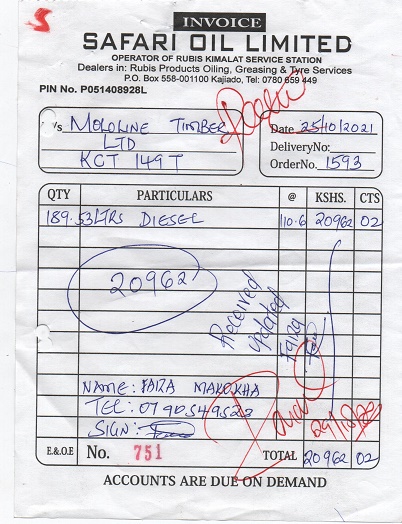 S
INVOICE
SAFARI OIL LIMITED
OPERATOR OF RUBIS KIMALAT SERVICE STATION
Dealers in: Rubis Products Oiling, Greasing & Tyre Services
P.O. Box 558-001100 Kajiado, Tel: 0780 659 449
PIN No. P051408928L
M/s MOLOLINE TIMBER
LTD
KCT 149T
Date 25/10/2021
DeliveryNo:
OrderNo. 1593
QTY PARTICULARS @ KSHS. CTS
189.53LTRS DIESEL 110.6 20962 02
20962
Received
updated
Faiza
NAME: FAIZA MAKOKHA
TEL: 0790549523
SIGN:
E.&O.E No. 751 TOTAL 20962 02
ACCOUNTS ARE DUE ON DEMAND